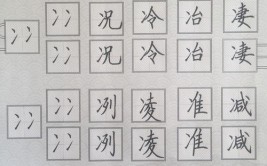 冫 冫冫 况 冷 冶 凄
冫冫 况 冷 冶 凄
冫 冫冫 冽 凌 准 减
冫冫 冽 凌 准 减